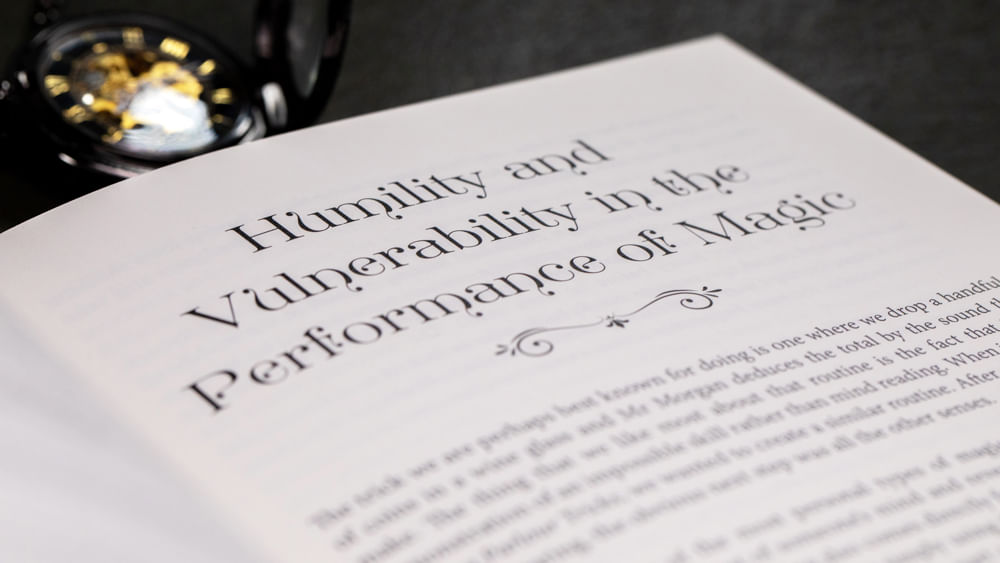 Humility and
Vulnerability in the
Performance of Magic
The trick we are perhaps best known for doing is one where we drop a handful
of coins in a wine glass and Mr Morgan deduces the total by the sound
make. The thing that we like most about that routine is the fact that
demonstration of an impossible skill rather than mind reading. When
Parlour Tricks, we wanted to create a similar routine. After
the obvious next step was all the other senses.
the most personal types of
of someone's mind and